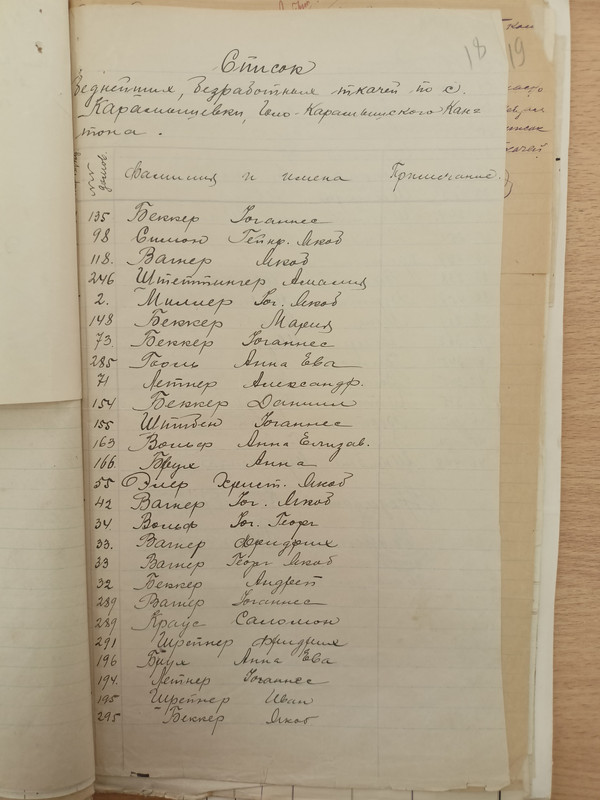 18 19
Список
Беднейших, безработных ткачей по с.
Карамышевки, Голо-Карамышского Кан=
тона.
№№ домов. Фамилия и имена Примечание.
135 Беккер Иоганнес
98 Симон Гейнр. Якоб
118. Вагнер Якоб
246 Штеттингер Амалия
2. Миллер Иог. Якоб
148 Беккер Мария
73. Беккер Иоганнес
285 Гооль Анна Ева
71 Лейтнер Александр.
154 Беккер Даниил
155 Иоганнес
163 Вольф Анна Елизав.
166. Брух Анна
55 Эллер Христ. Якоб
42 Вагнер Иог. Якоб
34 Вольф Иог. Георг
33. Вагнер Фридрих
33 Вагнер Георг Якоб
32 Беккер Андрей
289 Вагнер Иоганнес
289 Краус Саломон
291 Шрейнер Фридрих
196 Брух Анна Ева
194. Лейтнер Иоганнес
195 Шрейнер Иван
295 Беккер Якоб